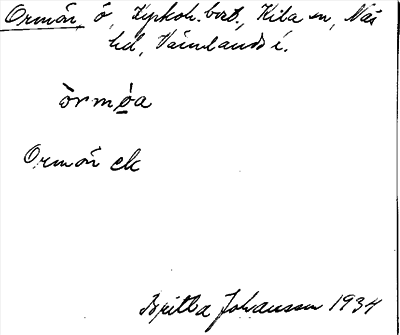 Ormön, ö, Kyrkoh.bost., Kila sn, Näs
hd, Värmlands l.
òrmö̀a
Ormön ek
Britta Johansson 1934